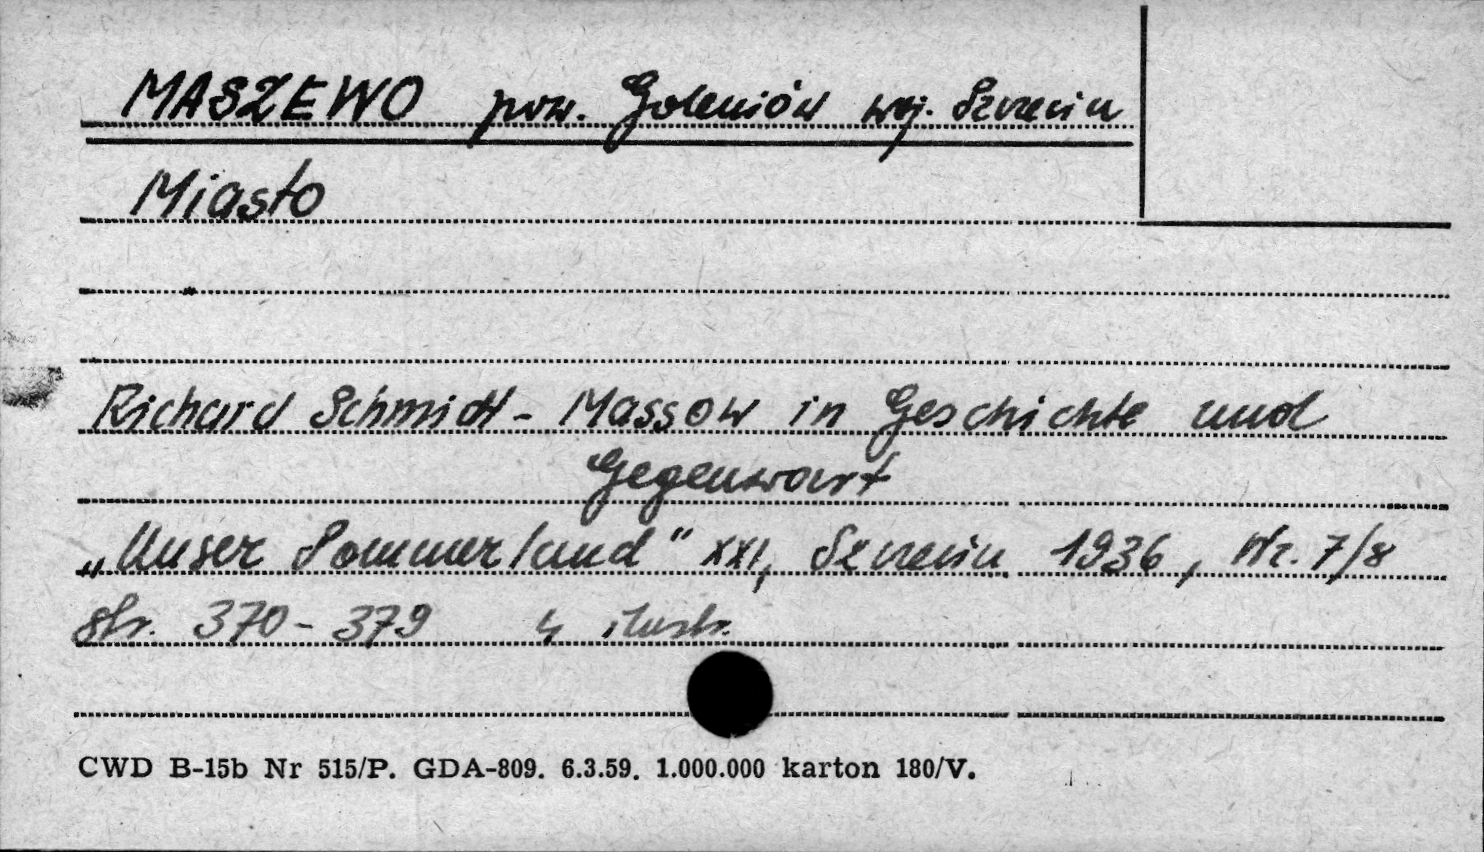 MASZEWO pow. Goleniów woj. Szczecin
Miasto
Richard Schmidt - Massow in Geschichte und
Gegenwart
„Unser Pommerland" XXI, Szczecin 1936, Nr. 7/8
str. 370-379 4 ilustr.
CWD B-15b Nr 515/P. GDA-809. 6.3.59. 1.000.000 karton 180/V.